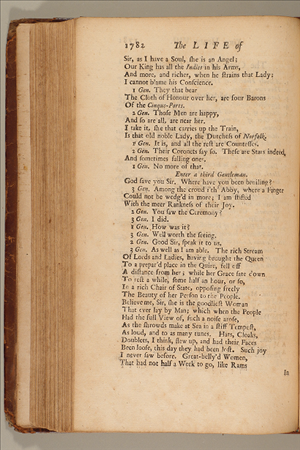 1782 The LIFE of
Sir, as I have a Soul, she is an Angel;
Our King has all the Indies in his Arms,
And more, and richer, when he strains that Lady:
I cannot blame his Conscience.
1 Gen. They that bear
The Cloth of Honour over her, are four Barons
Of the Cinque-Ports.
2 Gen. Those Men are happy,
And so are all, are near her.
I take it, she that carries up the Train,
Is that old noble Lady, the Dutchess of Norfolk,
1 Gen. It is, and all the rest are Countesses.
2 Gen. Their Coronets say so. These are Stars indeed,
And sometimes falling ones.
1 Gen. No more of that.
Enter a third Gentleman.
God save you Sir. Where have you been broiling?
3 Gen. Among the crowd i'th' Abby, where a Finger
Could not be wedg'd in more; I am stifled
With the meer Rankness of their Joy.
2 Gen. You saw the Ceremony?
3 Gen. I did.
1 Gen. How was it?
3 Gen. Well worth the seeing.
2 Gen. Good Sir, speak it to us,
3 Gen. As well as I am able. The rich Stream
Of Lords and Ladies, having brought the Queen
To a prepar'd place in the Quire, fell off
A distance from her; while her Grace sate down
To rest a while, some half an hour, or so,
In a rich Chair of State, opposing freely
The Beauty of her Person to the People.
Believe me, Sir, she is the goodliest Woman
That ever lay by Man; which when the People
Had the full View of, such a noise arose,
As the shrowds make at Sea in a stiff Tempest,
As loud, and to as many tunes. Hats, Cloaks,
Doublets, I think, flew up, and had their Faces
Been loose, this day they had been lost. Such joy
I never saw before. Great-belly'd Women,
That had not half a Week to go, like Rams